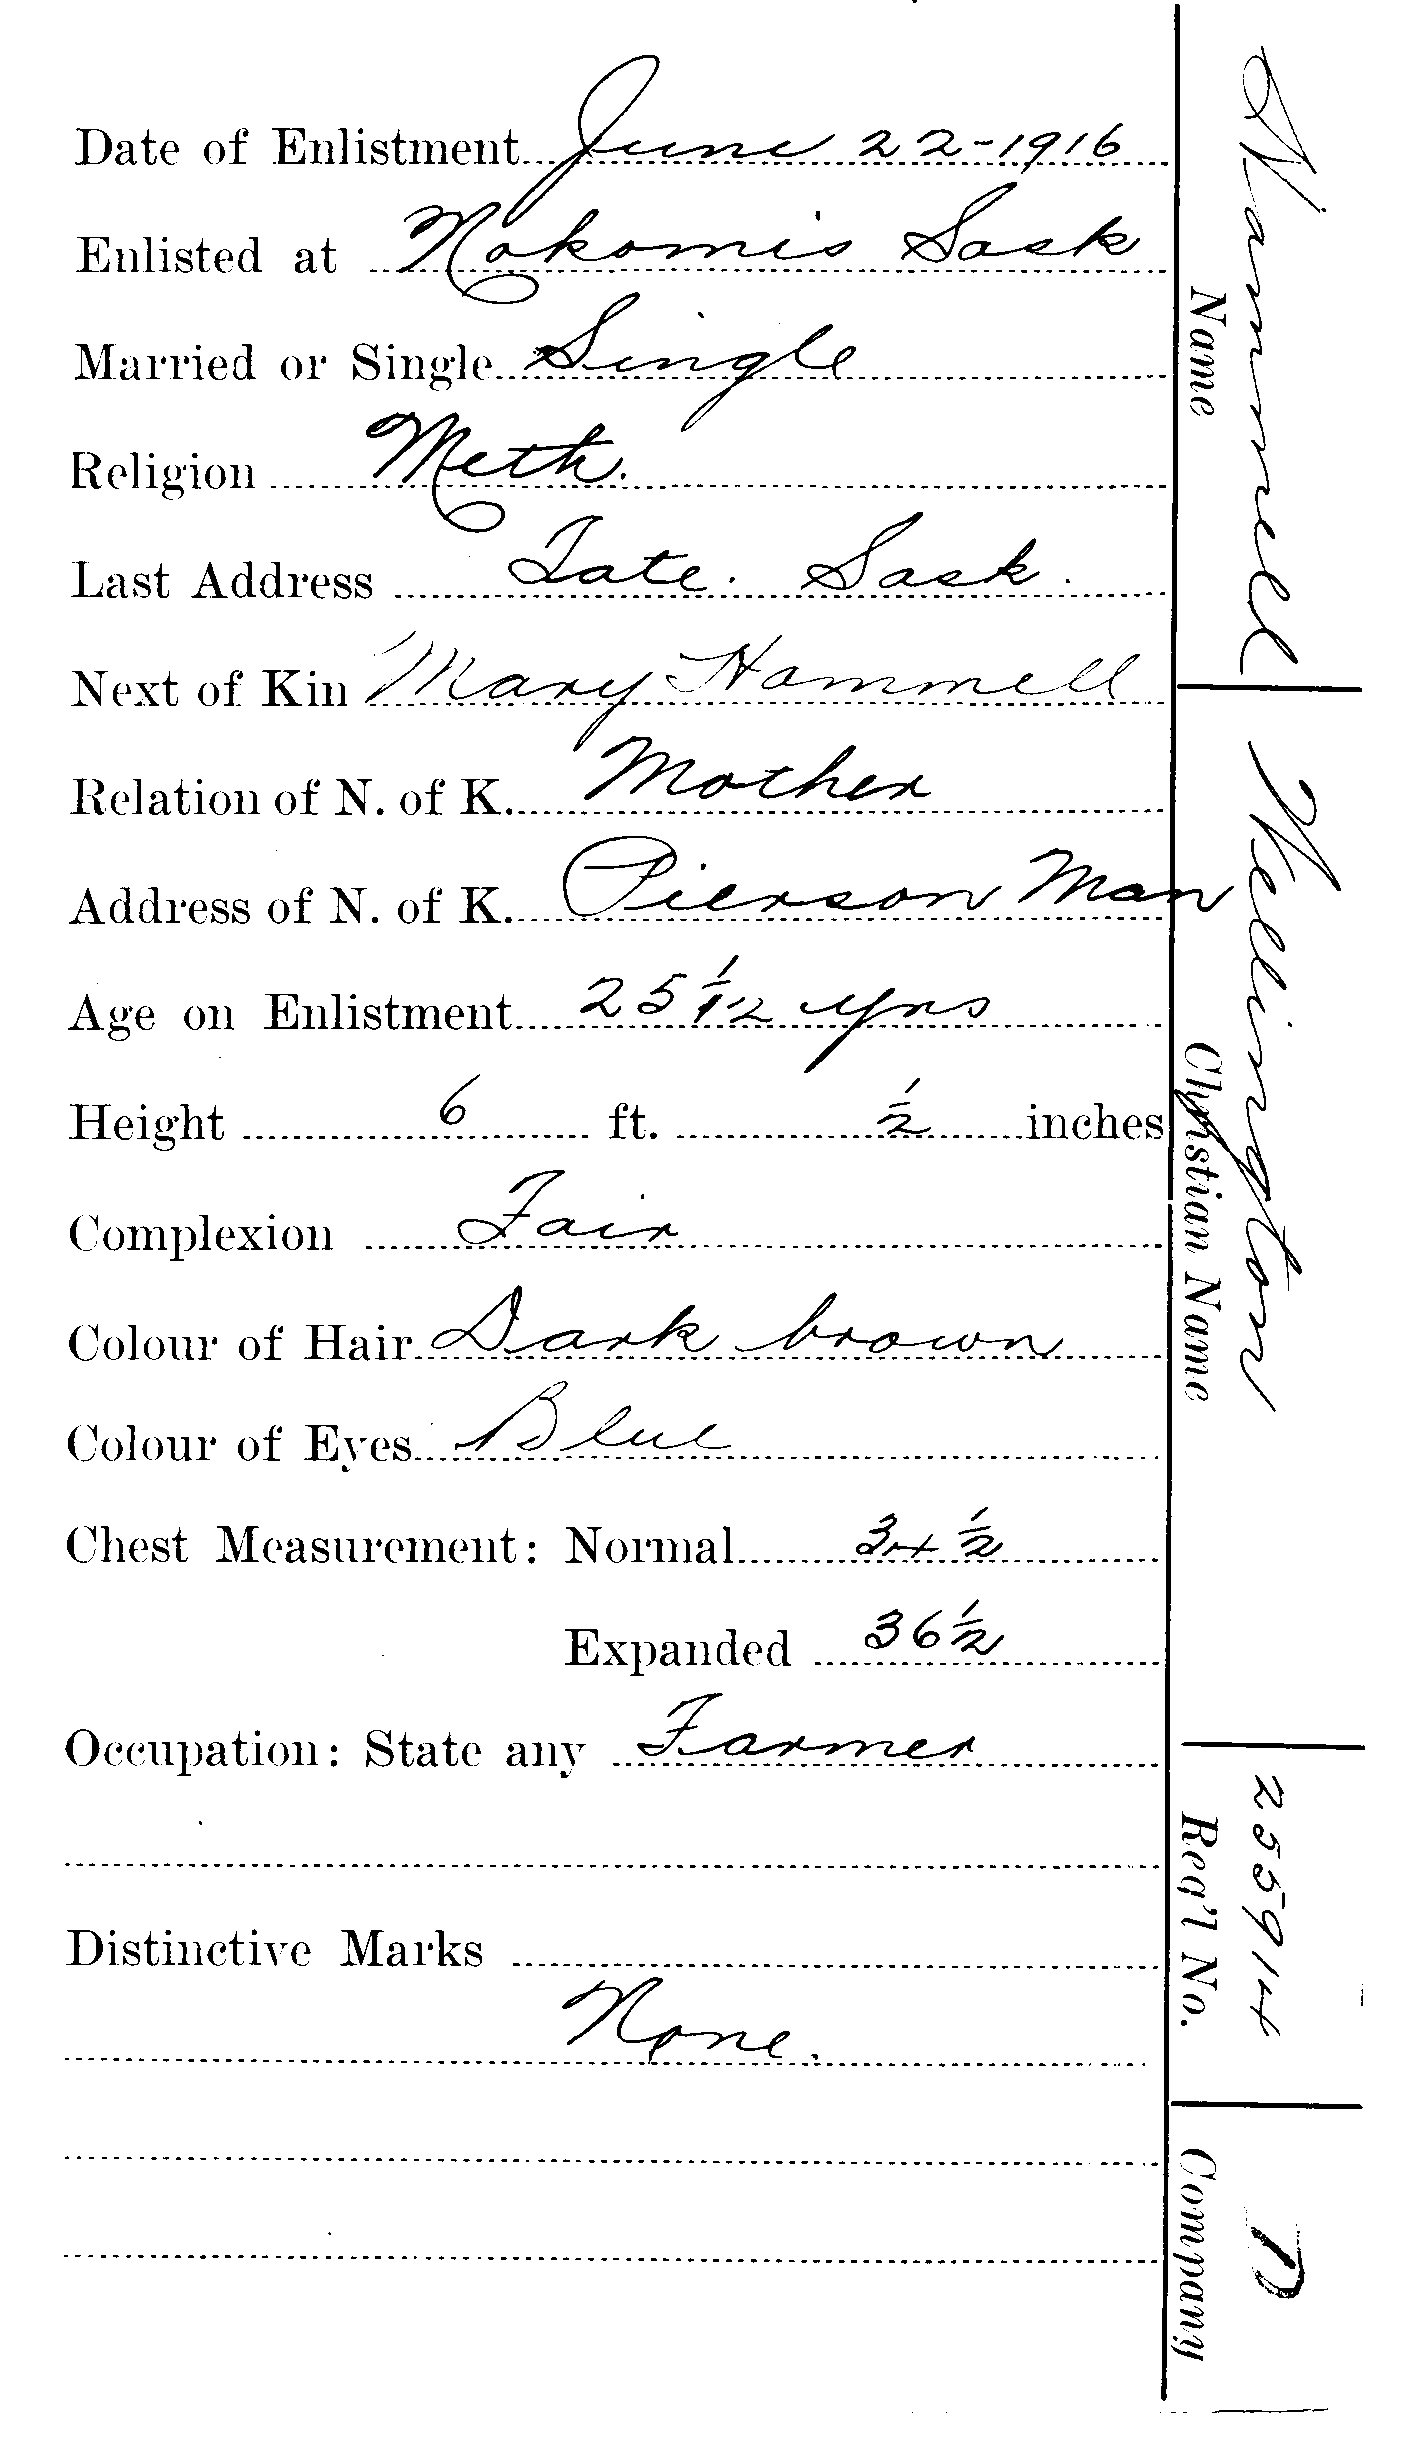 Date of Enlistment June 22-1916
Enlisted at Nokomis Sask
Married or Single Single
Religion Meth.
Last Address Tate. Sask.
Next of Kin Mary Hammell
Relation of N. of K. Mother
Address of N. of K. Pierson Man
Age on Enlistment 25 1/12 yrs
Height 6 ft. ½ inches
Complexion Fair
Colour of Hair Dark brown
Colour of Eyes Blue
Chest Measurement: Normal 34 ½
Expanded 36 ½
Occupation: State any Farmer
Distinctive Marks
None.
Hammell Wellington 255914 D
Name Christian Name Reg'l No. Company